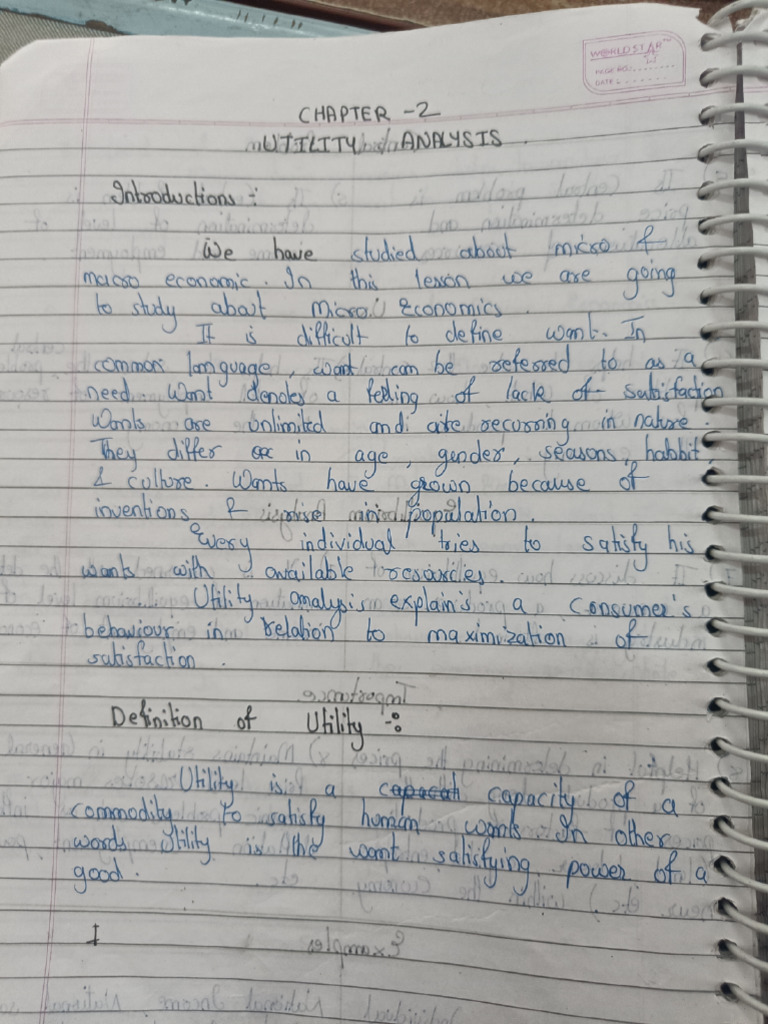 WORLD STAR
PAGE NO.:........
DATE: .......
CHAPTER - 2
UTILITY ANALYSIS
Introductions :
We have studied about micro &
macro economic. In this lesson we are going
to study about Micro Economics
It is difficult to define want. In
common language, want can be referred to as a
need want denotes a feeling of lack of satisfaction
Wants are unlimited and are recurring in nature.
They differ in age, gender, seasons, habbit,
& culture. Wants have grown because of
inventions & in population.
Every individual tries to satisfy his
wants with available resources.
Utility analysis explain's a consumer's
behaviour in relation to maximization of
satisfaction.
Definition of Utility :-
Utility is a capacity of a
commodity to satisfy human wants In other
words utility is the want satisfying power of a
good.
I